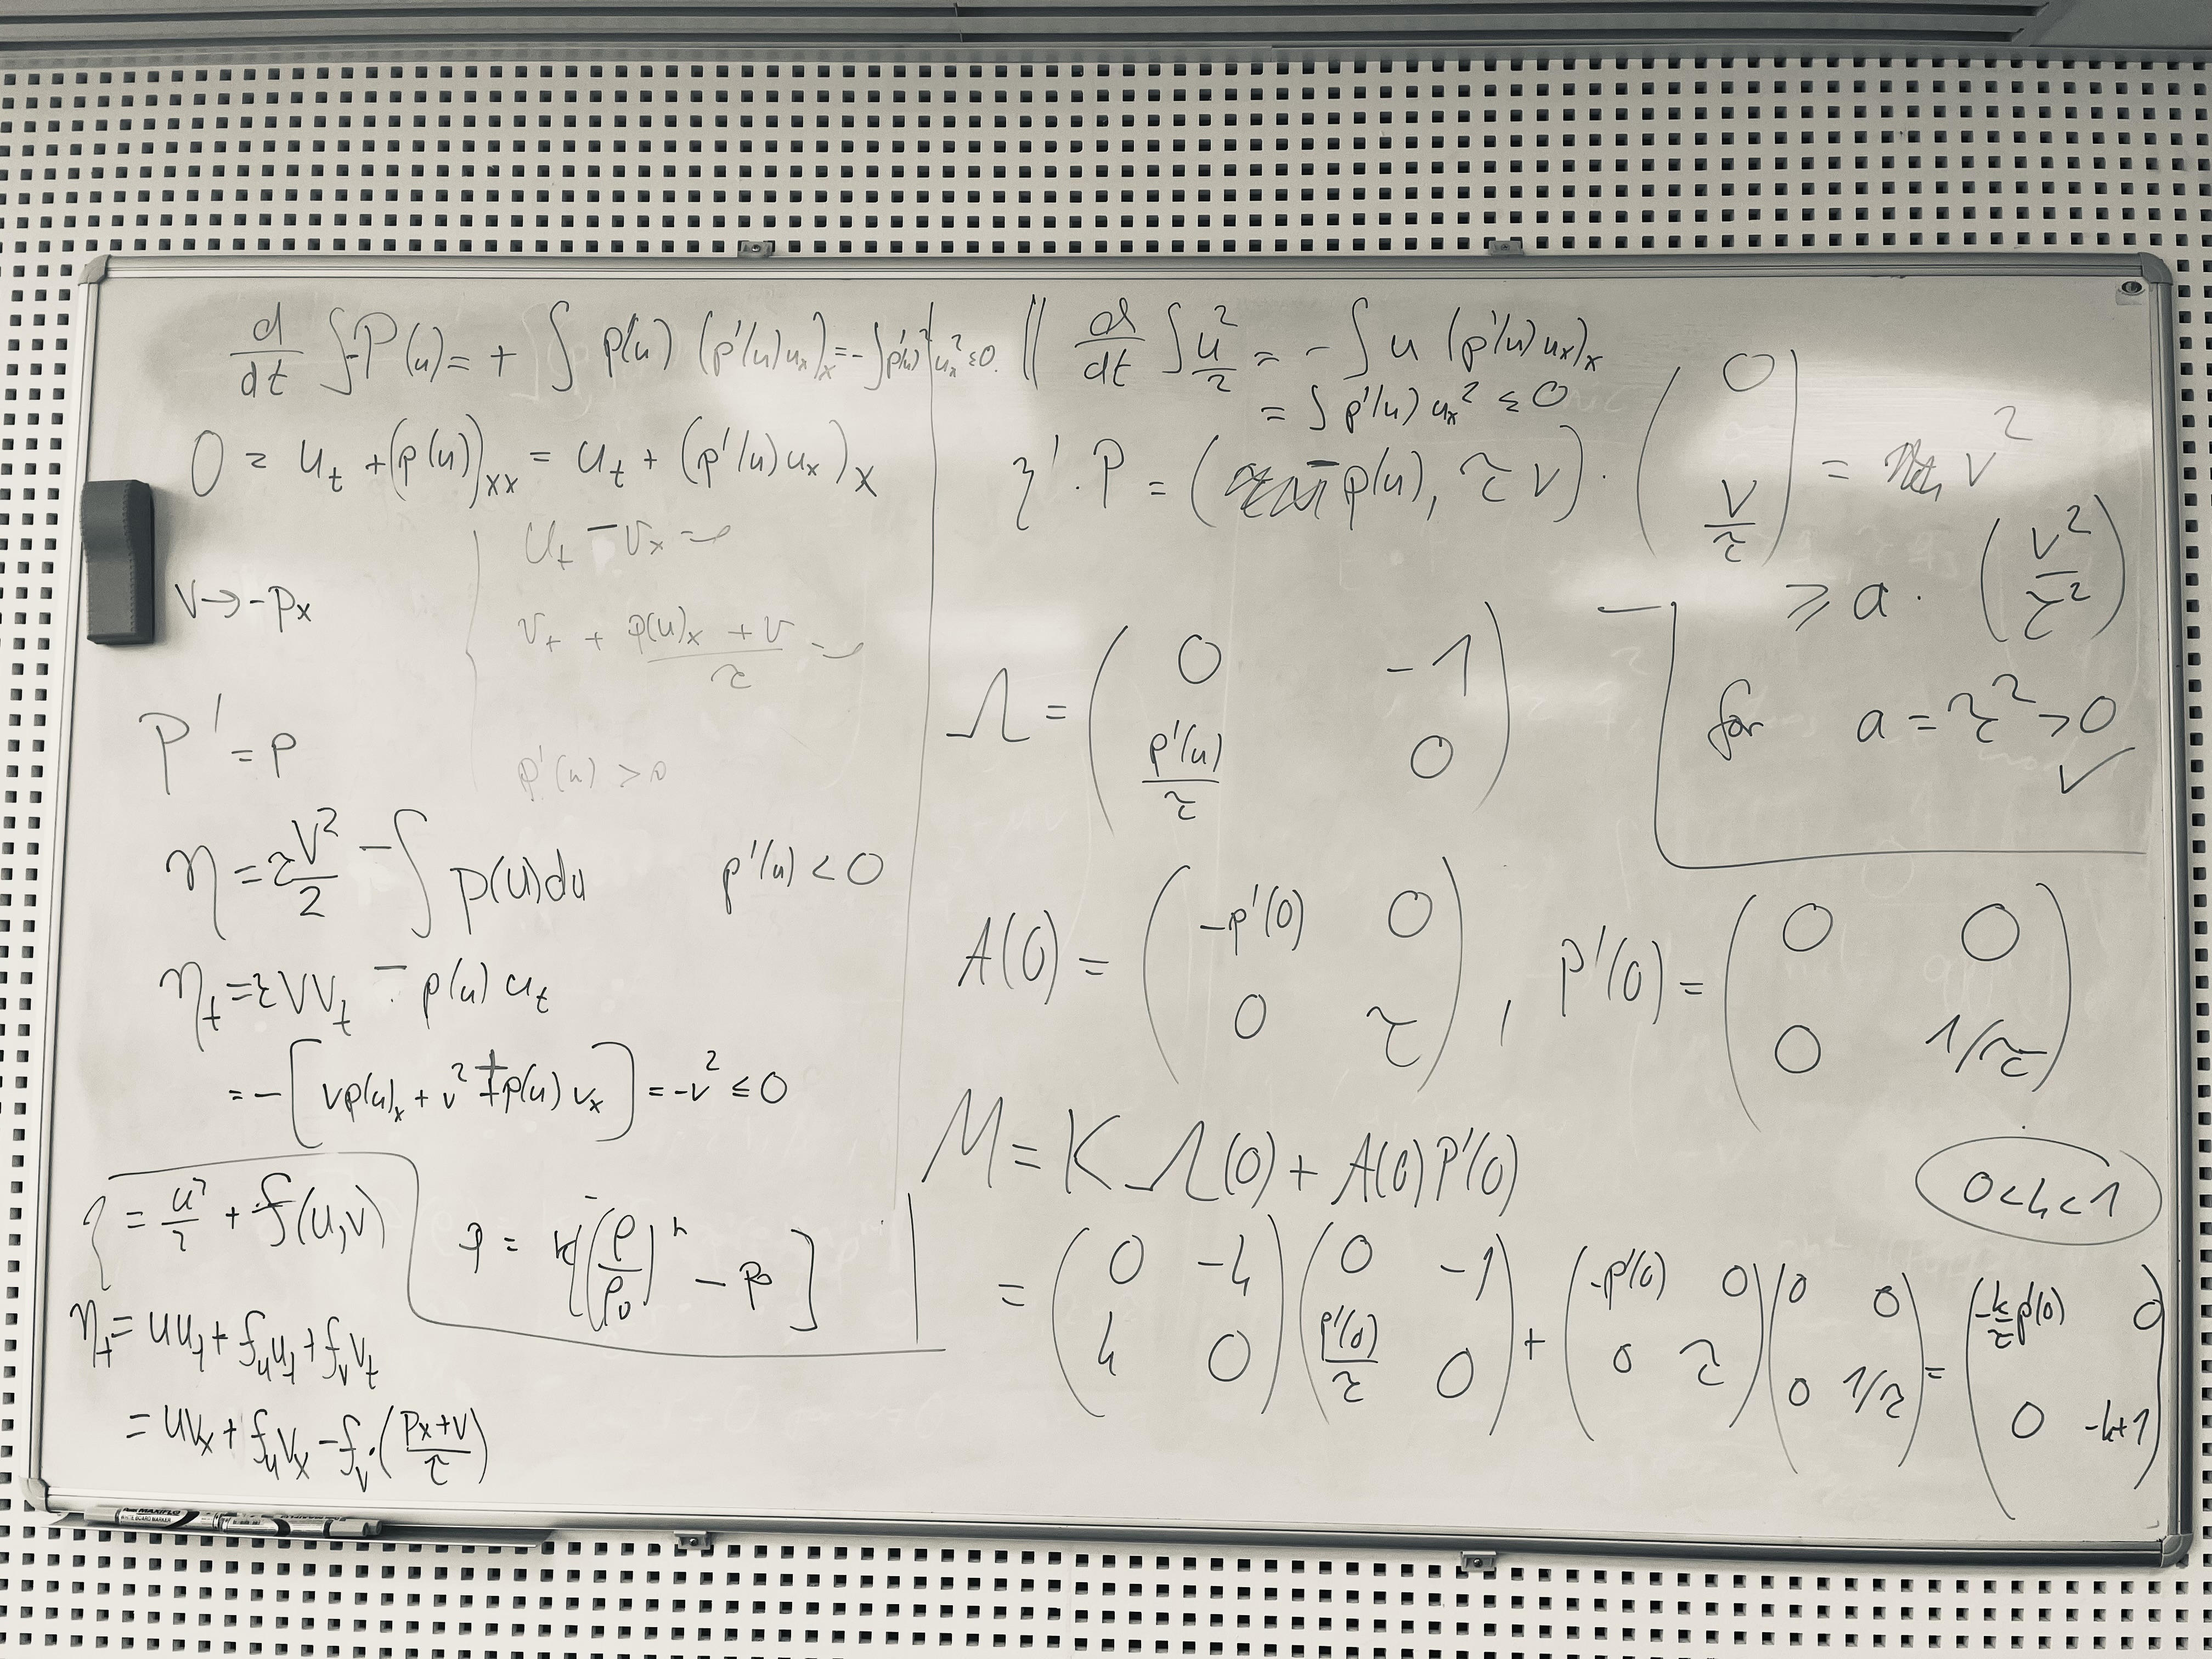 d/dt ∫-P(u) = + ∫ p(u) (p'(u)u_x)_x = -∫p'(u)² u_x² ≤ 0.
0 = u_t + (p(u))_xx = u_t + (p'(u)u_x)_x
u_t - v_x = 0
v → -p_x
v_t + (p(u)_x + v)/τ = 0
P' = p
p'(u) > 0
η = τ v²/2 - ∫ p(u)du    p'(u) < 0
η_t = τ v v_t - p(u) u_t
= -[v p(u)_x + v² + p(u) v_x] = -v² ≤ 0
η = u²/2 + f(u,v)
η_t = u u_t + f_u u_t + f_v v_t
= u v_x + f_u v_x - f_v · ((p_x + v)/τ)
[(ρ/ρ₀) - p₀]
|| d/dt ∫ u²/2 = - ∫ u (p'(u) u_x)_x
= ∫ p'(u) u_x² ≤ 0
η' · P = (-p(u), τ v) · (0 ; v/τ) = v²
≥ a · (v²/τ²)
for a = τ² > 0 ✓
Λ = (0  -1 ; p'(u)/τ  0)
A(0) = (-p'(0)  0 ; 0  τ) , P'(0) = (0  0 ; 0  1/τ)
M = K Λ(0) + A(0)P'(0)
0<k<1
= (0  -k ; k  0)(0  -1 ; p'(0)/τ  0) + (-p'(0)  0 ; 0  τ)(0  0 ; 0  1/τ) = (-k/τ p'(0)  0 ; 0  -k+1)
MAXIFLO